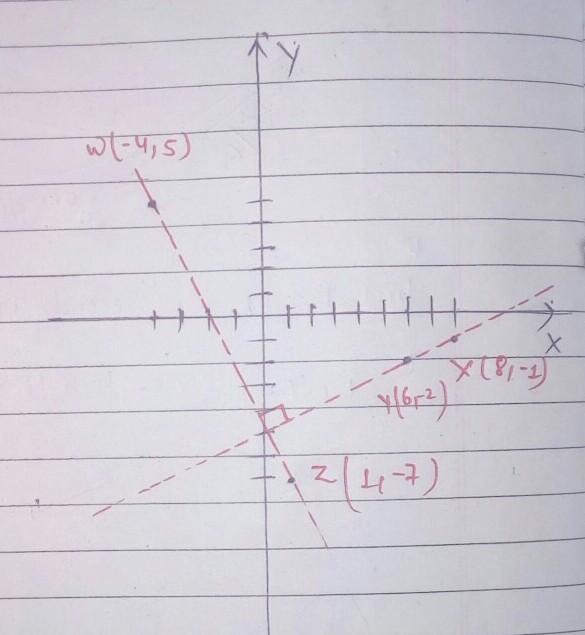 Y
W(-4,5)
X
X(8,-1)
Y(6,-2)
Z(1,-7)